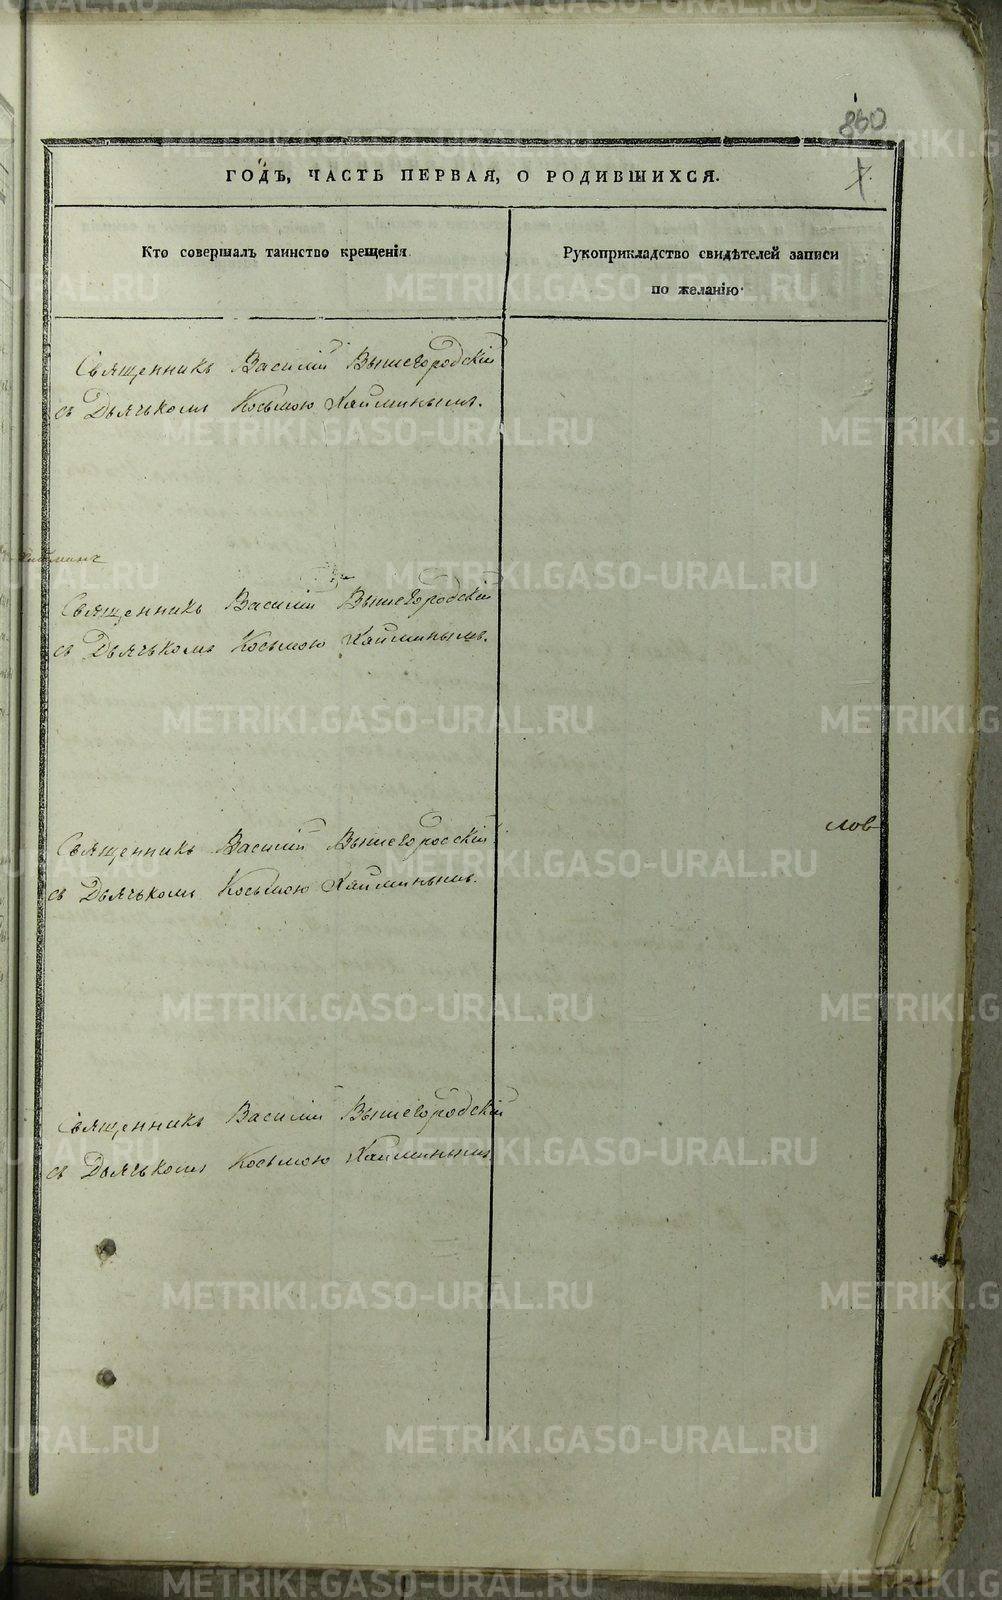 860
7.
ГОДЪ, ЧАСТЬ ПЕРВАЯ, О РОДИВШИХСЯ.
Кто совершалъ таинство крещенія.
Рукоприкладство свидѣтелей записи
по желанію.
Священникъ Василій Вышегородскій
съ Дьячькомъ Косьмою Хайминымъ.
Священникъ Василій Вышегородскій
съ Дьячькомъ Косьмою Хайминымъ.
лов
Священникъ Василій Вышегородскій
съ Дьячькомъ Косьмою Хайминымъ.
Священникъ Василій Вышегородскій
съ Дьячькомъ Косьмою Хайминымъ
METRIKI.GASO-URAL.RU